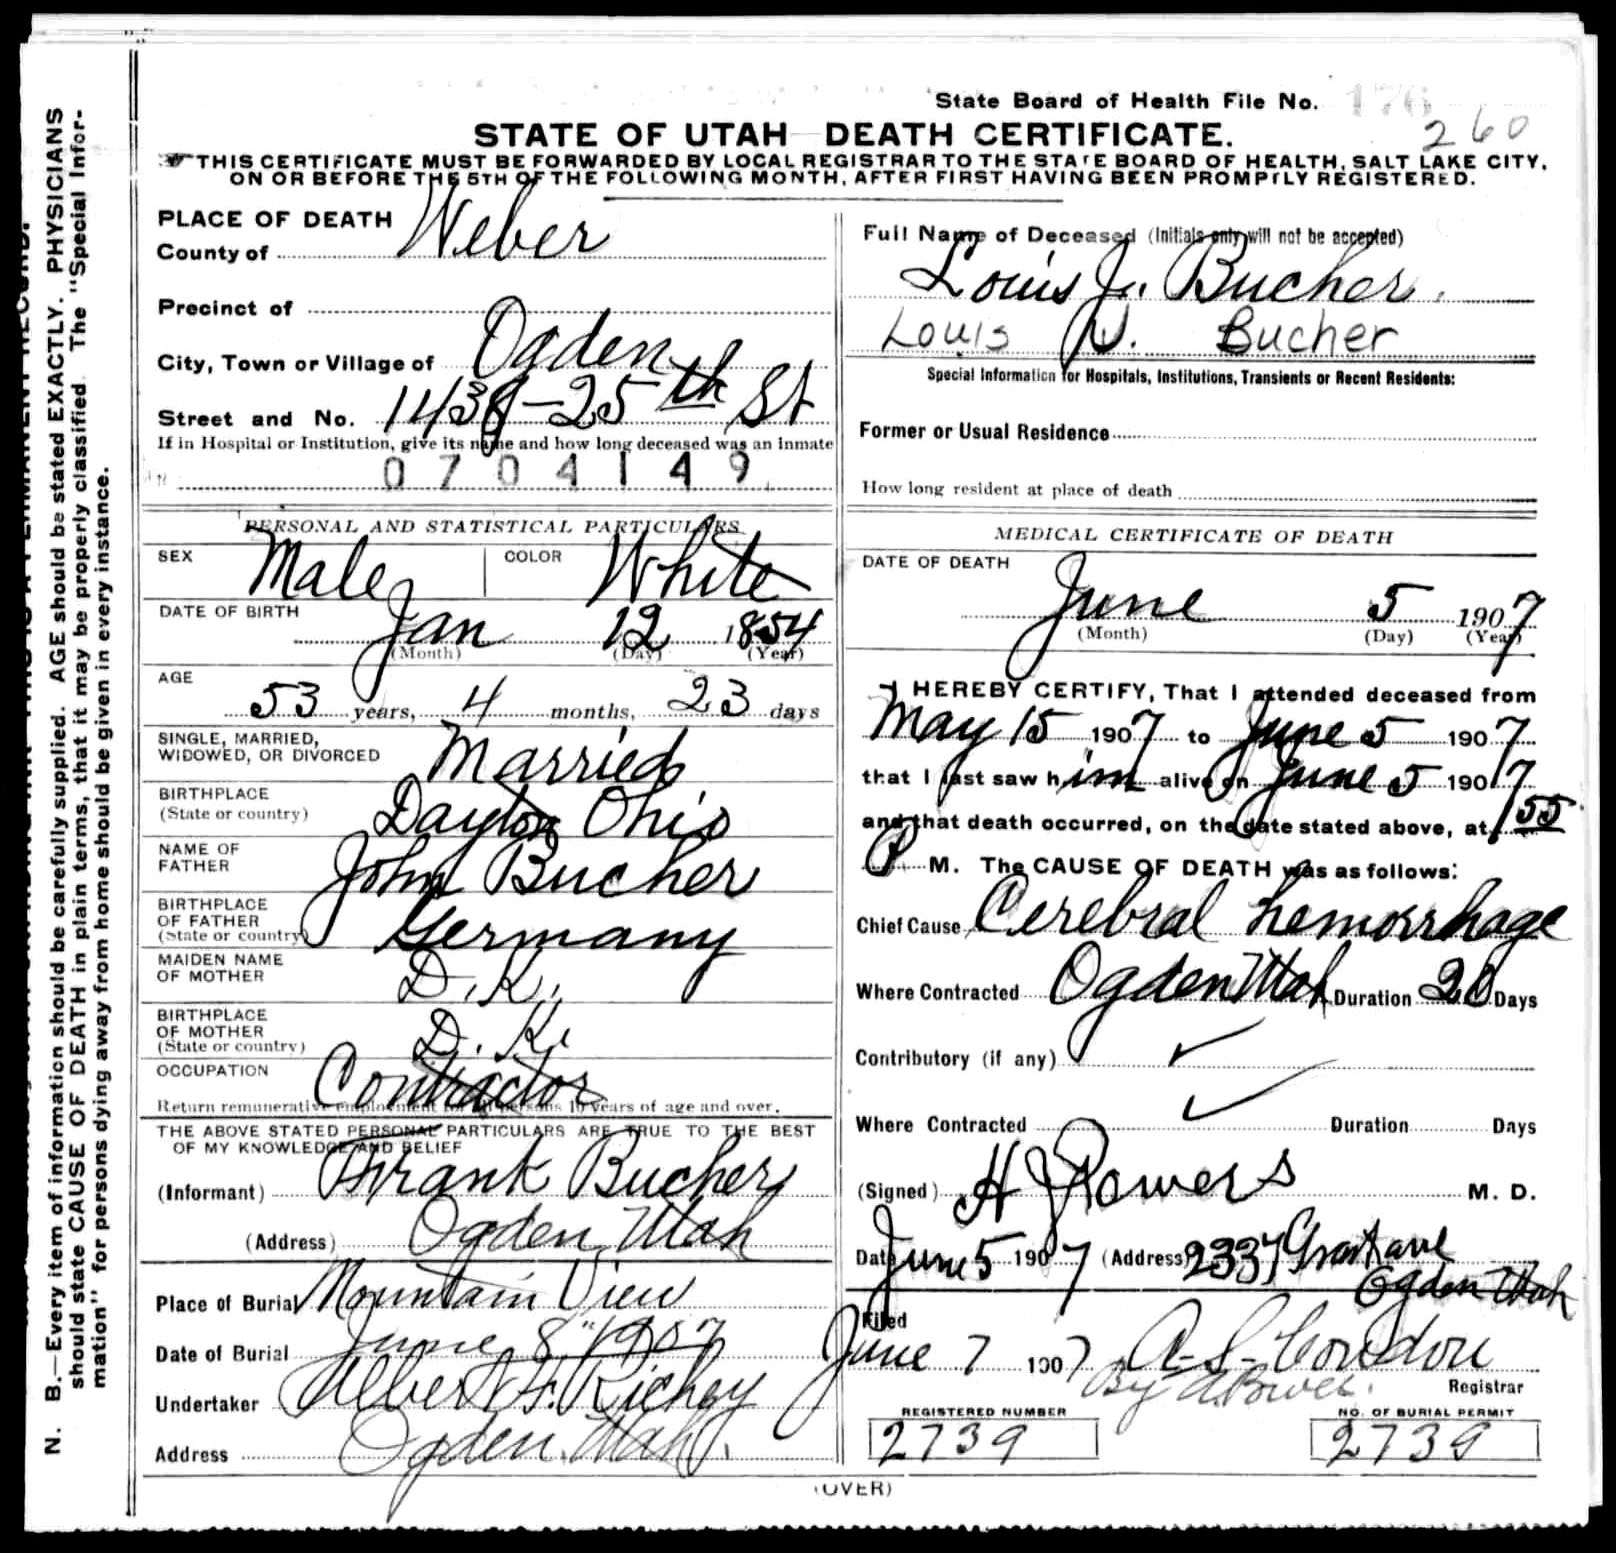 State Board of Health File No. 176
260
STATE OF UTAH DEATH CERTIFICATE.
THIS CERTIFICATE MUST BE FORWARDED BY LOCAL REGISTRAR TO THE STATE BOARD OF HEALTH, SALT LAKE CITY,
ON OR BEFORE THE 5TH OF THE FOLLOWING MONTH, AFTER FIRST HAVING BEEN PROMPTLY REGISTERED.
N. B.—Every item of information should be carefully supplied. AGE should be stated EXACTLY. PHYSICIANS
should state CAUSE OF DEATH in plain terms, that it may be properly classified. The "Special Infor-
mation" for persons dying away from home should be given in every instance.
PLACE OF DEATH
County of Weber
Precinct of
City, Town or Village of Ogden
Street and No. 1438-25th St
If in Hospital or Institution, give its name and how long deceased was an inmate
0704149
PERSONAL AND STATISTICAL PARTICULARS
SEX Male COLOR White
DATE OF BIRTH Jan 12 1854
(Month) (Day) (Year)
AGE
53 years, 4 months, 23 days
SINGLE, MARRIED,
WIDOWED, OR DIVORCED Married
BIRTHPLACE
(State or country) Dayton Ohio
NAME OF
FATHER John Bucher
BIRTHPLACE
OF FATHER
(State or country) Germany
MAIDEN NAME
OF MOTHER D. K.
BIRTHPLACE
OF MOTHER
(State or country) D. K.
OCCUPATION Contractor
Return remunerative employment for all persons 10 years of age and over.
THE ABOVE STATED PERSONAL PARTICULARS ARE TRUE TO THE BEST
OF MY KNOWLEDGE AND BELIEF
(Informant) Frank Bucher
(Address) Ogden, Utah
Place of Burial Mountain View
Date of Burial June 8" 1907
Undertaker Albert F. Richey
Address Ogden Utah.
Full Name of Deceased (Initials only will not be accepted)
Louis J. Bucher.
Louis W. Bucher
Special Information for Hospitals, Institutions, Transients or Recent Residents:
Former or Usual Residence
How long resident at place of death
MEDICAL CERTIFICATE OF DEATH
DATE OF DEATH
June 5 1907
(Month) (Day) (Year)
I HEREBY CERTIFY, That I attended deceased from
May 15 1907 to June 5 1907
that I last saw him alive on June 5 1907
and that death occurred, on the date stated above, at 1 55
P M. The CAUSE OF DEATH was as follows:
Chief Cause Cerebral hemorrhage
Where Contracted Ogden Utah Duration 20 Days
Contributory (if any)
Where Contracted Duration Days
(Signed) H J Powers M. D.
Date June 5 1907 (Address) 2337 Grant ave
Ogden Utah
Filed
June 7 1907 A. S. Condon
Registrar
REGISTERED NUMBER
2739
NO. OF BURIAL PERMIT
2739
(OVER)